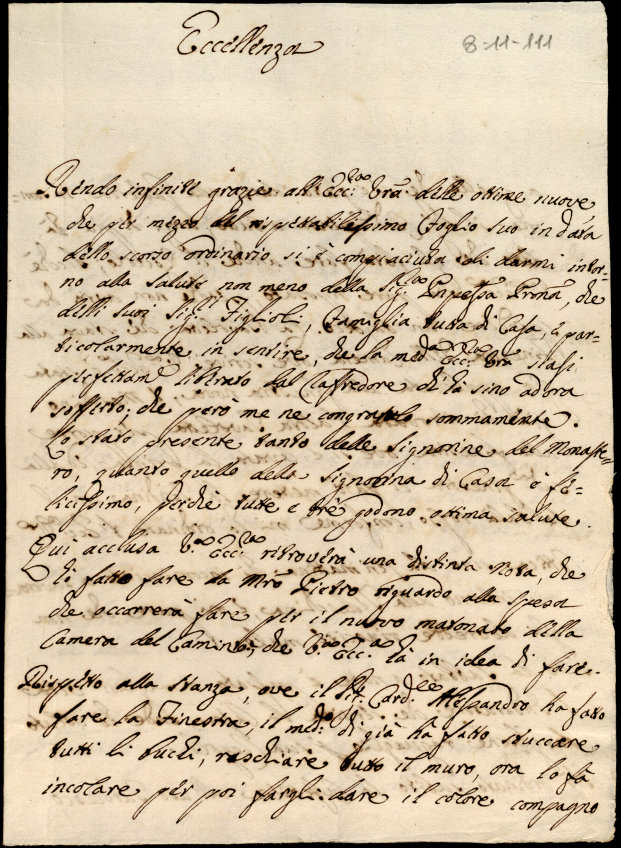 Eccellenza
8-11-111
Rendo infinite grazie all' Ecc.za Vrã delle ottime nuove
che per mezzo del rispettabilissimo Foglio suo in data
dello scorso ordinario si è compiaciuta coli darmi intor-
no alla salute non meno della Sig.ra Pnpessa Pmña, che
delli suoi Sig.ri Figlioli, Famiglia tutta di Casa, è par-
ticolarmente in sentire, che la med.a Ecc.za Vrã siasi
perfettam.e liberato dal Raffredore di là sino ad ora
sofferto; che però me ne congratulo sommamente.
Lo stato presente tanto delle Signorine del Monaste-
ro, quanto quello della Signorina di Casa è fe-
licissimo, perchè tutte e trè godono ottima salute.
Qui acclusa V.a Ecc.za ritroverà una distinta Nota, che
hò fatto fare da Mrõ Pietro riguardo alla spesa
che occorrerà fare per il nuovo mattonato della
Camera del Camino, che V.a Ecc.za hà in idea di fare.
Rispetto alla stanza, ove il Sig. Card.le Alessandro ha fatto
fare la Finestra, il med.o di già hà fatto stuccare
tutti li buchi, raschiare tutto il muro, ora lo fà
incolare per poi fargli dare il colore compagno